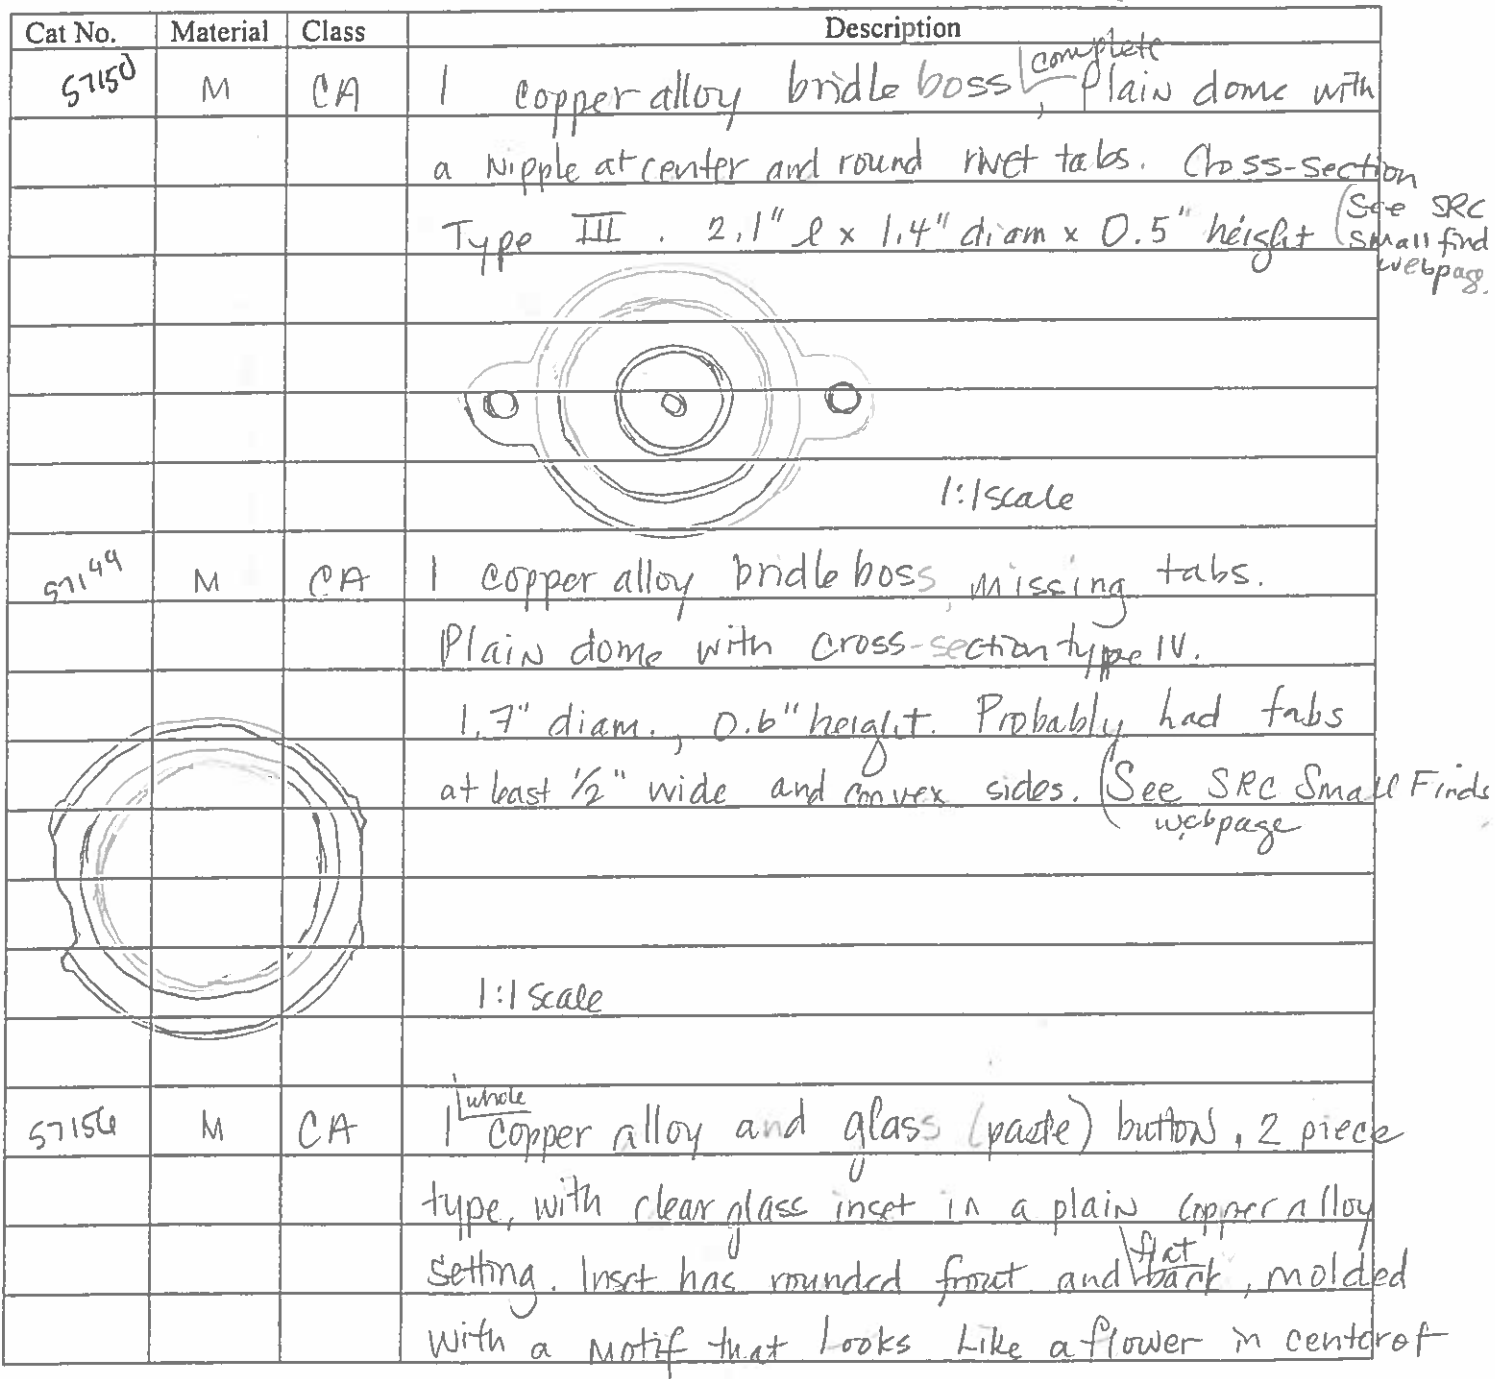 Cat No. Material Class Description
57150 M CA 1 copper alloy bridle boss, complete Plain dome with
a Nipple at center and round rivet tabs. Cross-section
Type III. 2.1" l x 1.4" diam x 0.5" height (See SRC
small find
webpage.
1:1 scale
57149 M CA 1 copper alloy bridle boss, missing tabs.
Plain dome with cross-section type IV.
1.7" diam., 0.6" height. Probably had tabs
at least 1/2" wide and convex sides. (See SRC Small Finds
webpage
1:1 Scale
M CA 1 whole copper alloy and glass (paste) button, 2 piece
type, with clear glass inset in a plain copper alloy
setting. Inset has rounded front and flat back, molded
with a motif that looks like a flower in center of